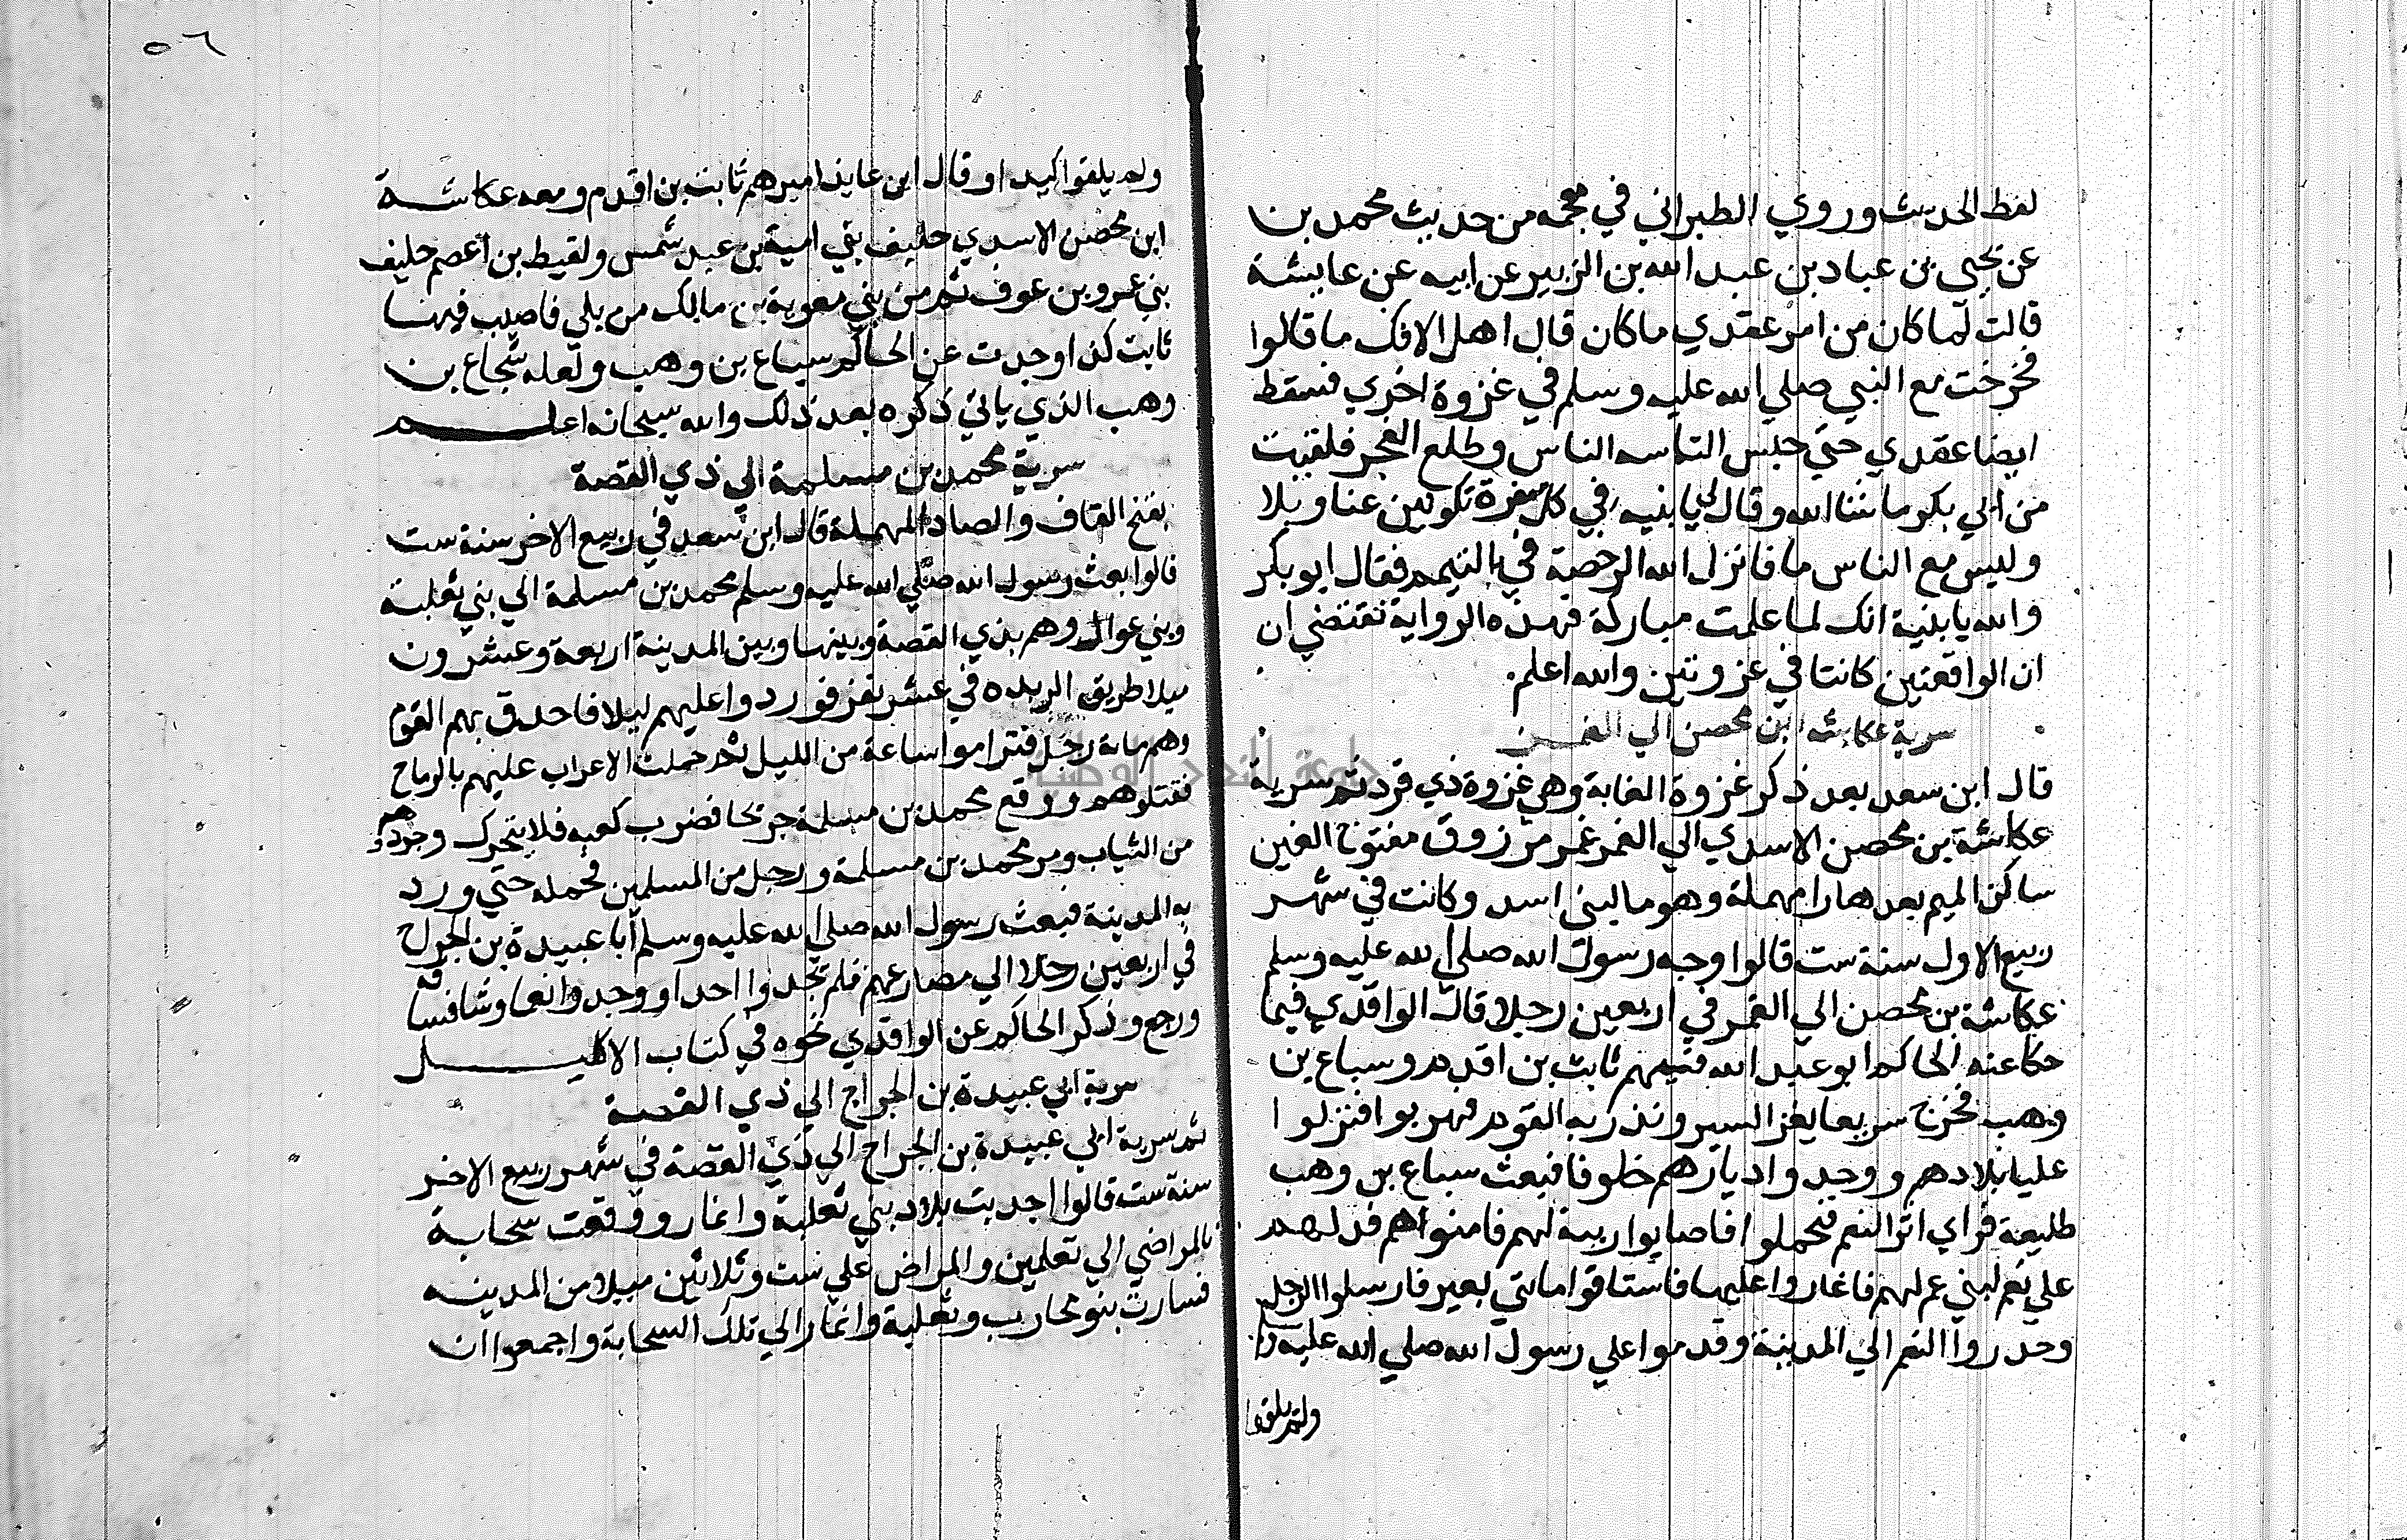 لفظ الحديث وروي الطبراني في معجمه من حديث محمد بن
عن يحيي بن عباد بن عبد الله بن الزبير عن ابيه عن عايشة
قالت لما كان من امر عقدي ما كان قال اهل الافك ما قالوا
فخرجت مع النبي صلي الله عليه وسلم في غزوة اخري فسقط
ايضا عقدي حتي حبس التماسه الناس وطلع الفجر فلقيت
من ابي بكر ما شا الله وقال لي يا بنيه في كل سفرة تكونين عنا وبلا
وليس مع الناس ما فانزل الله الرخصة في التيمم فقال ابو بكر
والله يا بنية انك لما علمت مباركة فهذه الرواية تقتضي ان
ان الواقعتين كانتا في غزوتين والله اعلم
سرية عكاشه ابن محصن الي الغمر
قال ابن سعد بعد ذكر غزوة الغابة وهي غزوة ذي قرد ثم سرية
عكاشة بن محصن الاسدي الي الغمر غمر مرزوق مفتوح الغين
ساكن الميم بعدها را مهملة وهو ما لبني اسد وكانت في شهر
ربيع الاول سنة ست قالوا وجه رسول الله صلي الله عليه وسلم
عكاشة بن محصن الي الغمر في اربعين رجلا قال الواقدي فيما
حكا عنه الحاكم ابو عبد الله فيهم ثابت بن اقدم وسباع بن
وهب فخرج سريعا يغز السير ونذر به القوم فهربوا فنزلوا
عليا بلادهم ووجدوا ديارهم خلوفا فبعث سباع بن وهب
طليعة فراي اثر النعم فتحملوا فاصابوا ربية لهم فامنوا هم فدلهم
علي نعم لبني عم لهم فاغاروا عليها فاستاقوا مايتي بعير فارسلوا الرجل
وحدروا النعم الي المدينة وقدموا علي رسول الله صلي الله عليه
ولم يلقوا
٥٦
ولم يلقوا كيدا وقال ابن عايذ اميرهم ثابت بن اقدم ومعه عكاشة
ابن محصن الاسدي حليف بني امية بن عبد شمس ولقيط بن اعصم حليف
بني عمرو بن عوف ثم من بني معوية بن مالك من بلي فاصيب فيها
ثابت كذا وجدت عن الحاكم سباع بن وهب ولعله شجاع بن
وهب الذي ياتي ذكره بعد ذلك والله سبحانه اعلم
سرية محمد بن مسلمة الي ذي القصة
بفتح القاف والصاد المهملة قال ابن سعد في ربيع الاخر سنة ست
قالوا بعث رسول الله صلي الله عليه وسلم محمد بن مسلمة الي بني ثعلبة
وبني عوال وهم بذي القصة وبينها وبين المدينة اربعة وعشرون
ميلا طريق الربده في عشر نفر فوردوا عليهم ليلا فاحدق بهم القوم
وهم ماية رجل فتراموا ساعة من الليل ثم حملت الاعراب عليهم بالرماح
فقتلوهم ووقع محمد بن مسلمة جريحا فضرب كعبه فلا يتحرك وجردوهم
من الثياب ومر محمد بن مسلمة ورجل من المسلمين فحمله حتي ورد
به المدينة فبعث رسول الله صلي الله عليه وسلم ابا عبيدة بن الجراح
في اربعين رجلا الي مصارعهم فلم تجدوا احدا ووجدوا نعما وشا فساقه
ورجع وذكر الحاكم عن الواقدي نحوه في كتاب الاكليل
سرية ابي عبيدة بن الجراح الي ذي القصة
ثم سرية ابي عبيدة بن الجراح الي ذي القصة في شهر ربيع الاخر
سنة ست قالوا اجدبت بلاد بني ثعلبة وانمار ووقعت سحابة
بالمراضي الي تعلمين والمراض علي ست وثلاثين ميلا من المدينه
فسارت بنو محارب وثعلبة وانمار الي تلك السحابة واجمعوا ان